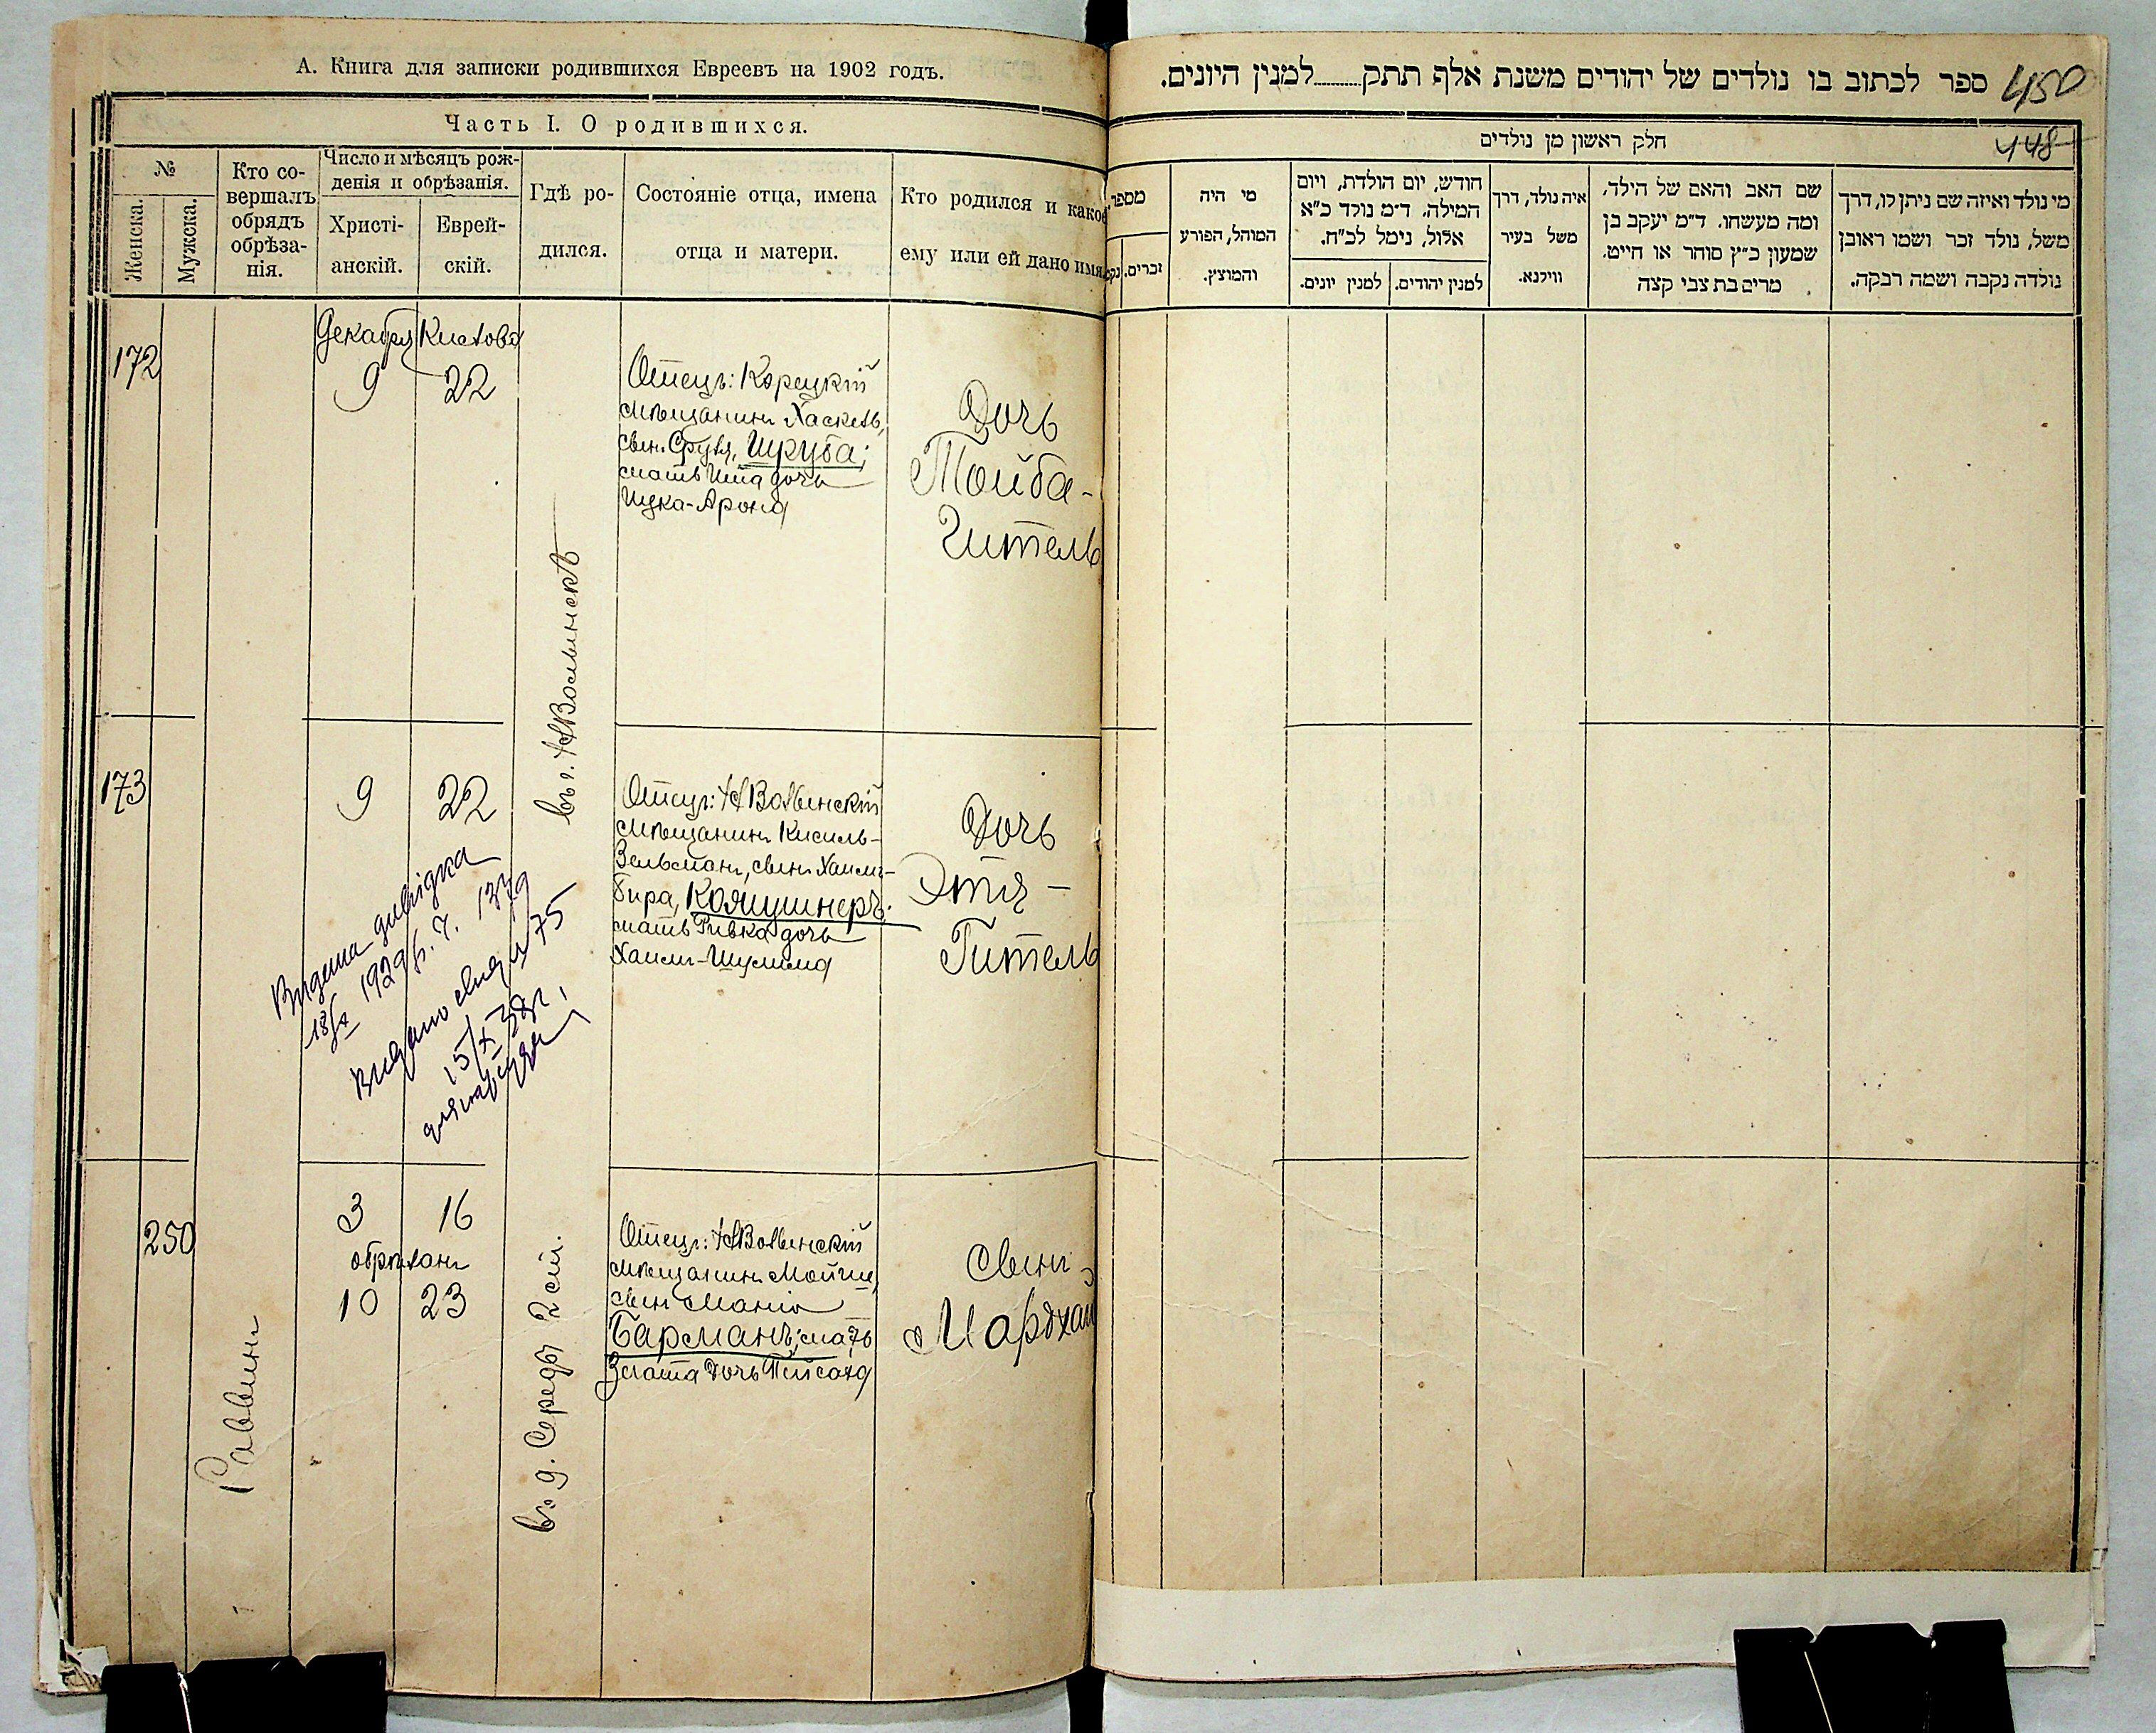 А. Книга для записки родившихся Евреевъ на 1902 годъ.
Часть I. О родившихся.
№
Женска.
Мужска.
Кто со-
вершалъ
обрядъ
обрѣза-
нія.
Число и мѣсяцъ рож-
денія и обрѣзанія.
Христі-
анскій.
Еврей-
скій.
Гдѣ ро-
дился.
Состояніе отца, имена
отца и матери.
Кто родился и какое
ему или ей дано имя
172
Декабря
9
22
въ г. НВолынскѣ
Отецъ: Корецкій
мѣщанинъ Хаскель,
сынъ Сруля, Шруба;
мать дочь
Ицка-Арона
Дочь
Тойба-
Гитель
173
9
22
Отецъ: НВолынскій
мѣщанинъ Кисиль-
Зельманъ, сынъ Хаимъ-
мать Ривка дочь
Хаимъ-Шулима
Дочь
Этя-
Гитель
Видана довідка
1929 р.
Видано
75
250
Раввинъ
3
16
обрѣзанъ
10
23
въ д. Середы 2 ст.
Отецъ: НВолынскій
мѣщанинъ Мойше,
сынъ
Барманъ; мать
Злата дочь Пейсаха
Сынъ
Мордхай
450
448
ספר לכתוב בו נולדים של יהודים משנת אלף תתק......למנין היונים.
חלק ראשון מן נולדים
מספר
זכרים.
מי היה
המוהל, הפורע
והמוצץ.
חודש, יום הולדת, ויום
המילה. ד״מ נולד כ״א
אלול, נימל לכ״ח.
למנין יונים.
למנין יהודים.
איה נולד, דרך
משל בעיר
ווילנא.
שם האב והאם של הילד,
ומה מעשהו. ד״מ יעקב בן
שמעון כ״ץ סוחר או חייט.
מרים בת צבי קצה
מי נולד ואיזה שם ניתן לו, דרך
משל, נולד זכר ושמו ראובן
נולדה נקבה ושמה רבקה.